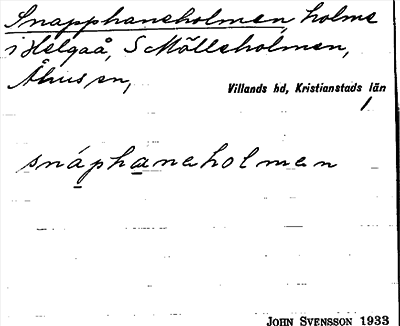 Snapphaneholmen, holme
i Helgaå, S Mölleholmen,
Åhus sn,
Villands hd, Kristianstads län
snáphaneholmen
JOHN SVENSSON 1933